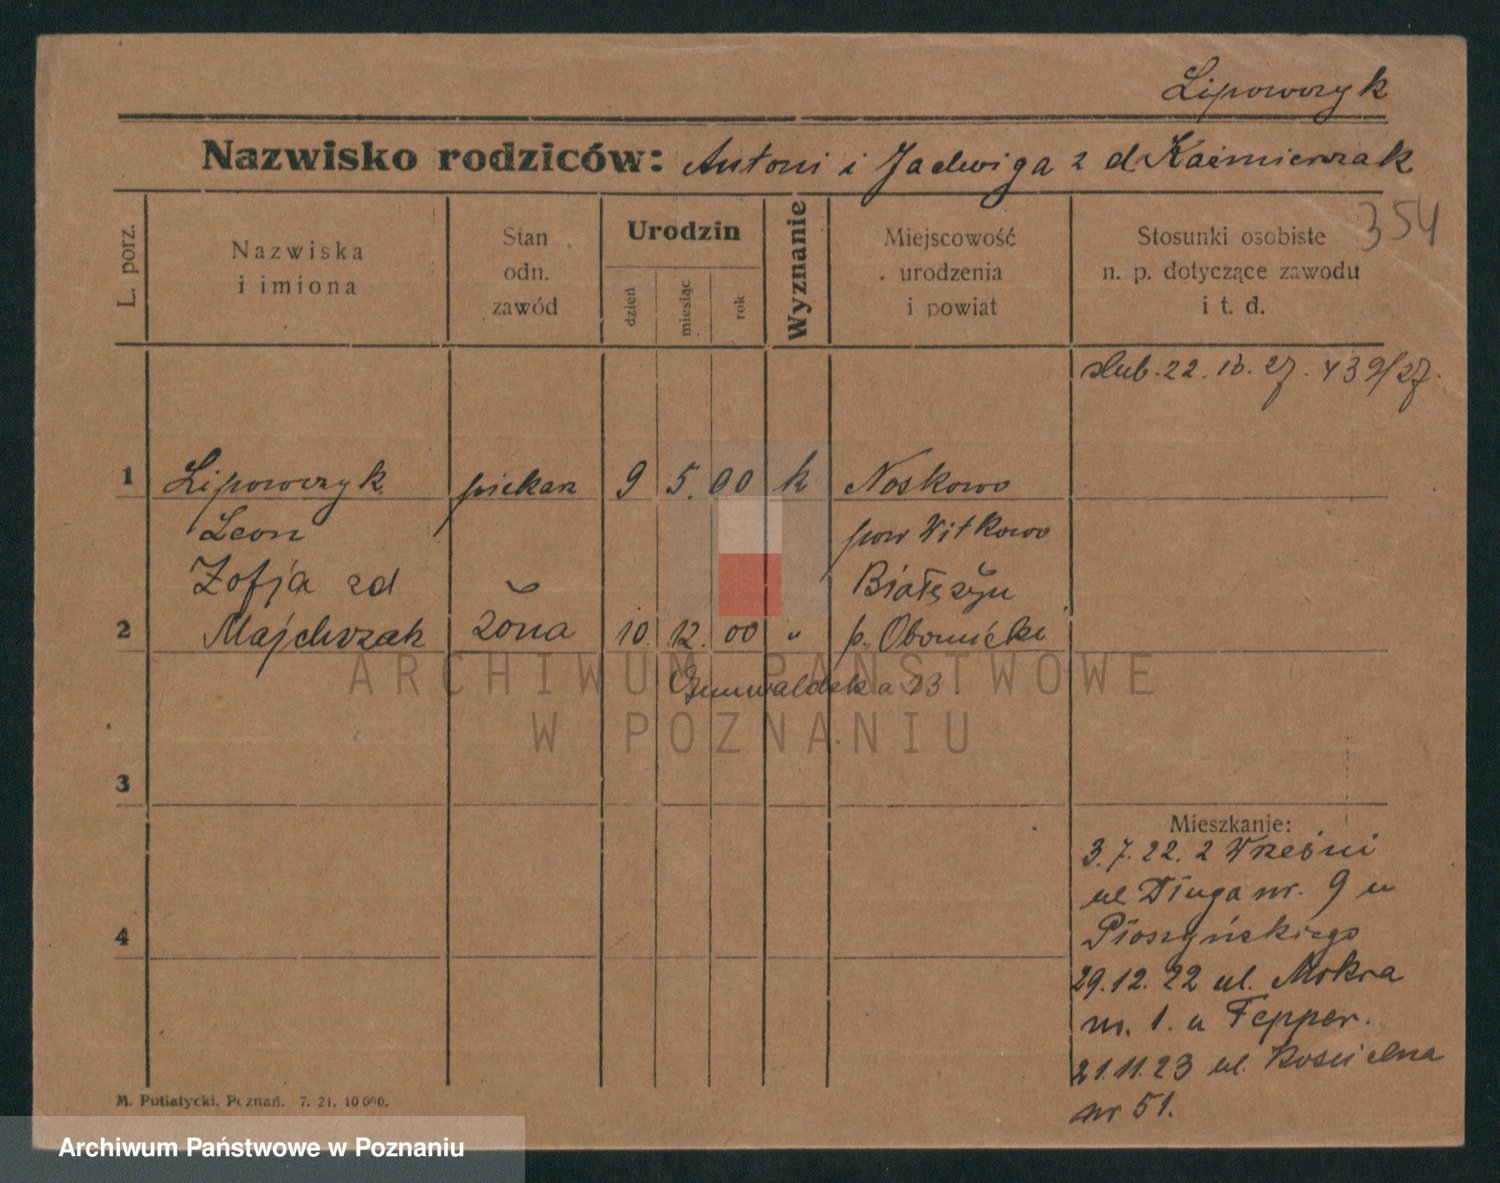 Lipowczyk
Nazwisko rodziców: Antoni i Jadwiga z d. Kaźmierzak
354
L. porz.
Nazwiska
i imiona
Stan
odn.
zawód
Urodzin
dzień
miesiąc
rok
Wyznanie
Miejscowość
urodzenia
i powiat
Stosunki osobiste
n. p. dotyczące zawodu
i t. d.
ślub. 22. 10. 27. 439/27.
1 Lipowczyk piekarz 9 5. 00 k Noskowo
Leon pow Witkowo
Zofja zd Białężyn
2 Majchrzak żona 10. 12. 00 " p. Obornicki
Grunwaldska 13
ARCHIWUM PAŃSTWOWE
W POZNANIU
3
Mieszkanie:
3. 7. 22. z Wrześni
ul Długa nr. 9 u
4
Płoszyńskiego
29. 12. 22 ul. Mokra
nr. 1. u Tepper.
21. 11. 23 ul. Kościelna
nr 51.
M. Putiatycki, Poznań. 7. 21. 10 000.
Archiwum Państwowe w Poznaniu